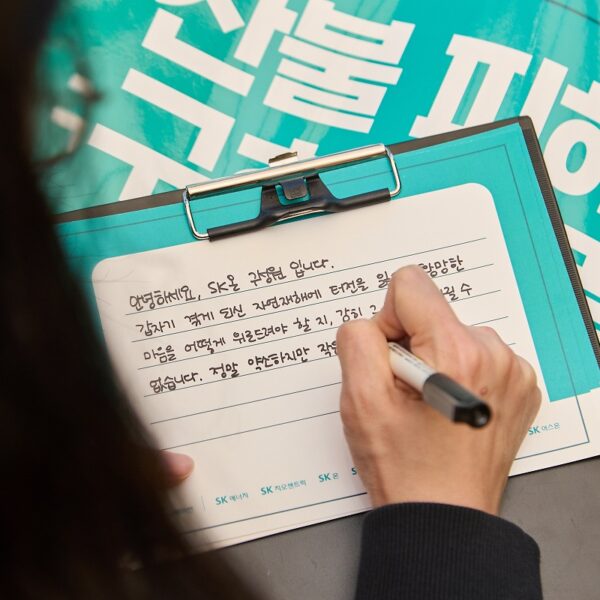 불 피
안녕하세요, SK온 구성원 입니다.
갑자기 겪게 되신 자연재해에 터전을
마음을 어떻게 위로드려야 할 지, 감히 수
없습니다. 정말 약소하지만
SK 에너지 SK 지오센트릭 SK 온 SK 어스온